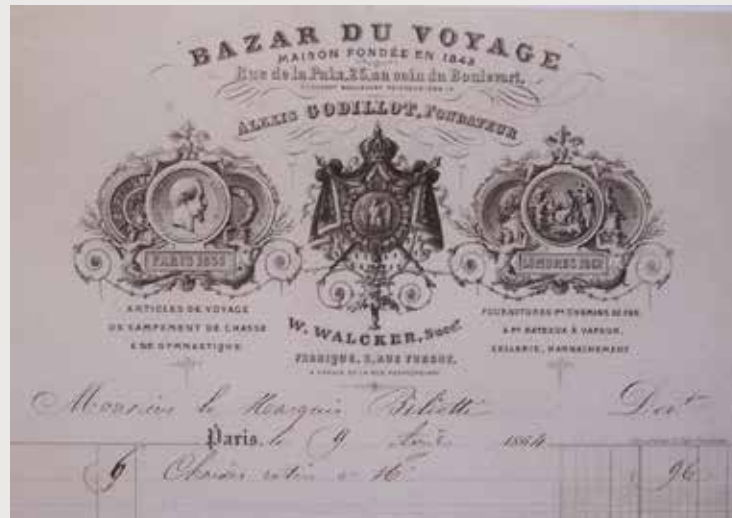 BAZAR DU VOYAGE
MAISON FONDÉE EN 1843
Rue de la Paix, 25, au coin du Boulevart.
ALEXIS GODILLOT, FONDATEUR
PARIS 1855
LONDRES 1862
ARTICLES DE VOYAGE
DE CAMPEMENT DE CHASSE
& DE GYMNASTIQUE
W. WALCKER, Succr.
FABRIQUE, 3, RUE
FOURNITURES Pr. CHEMINS DE FER
& Pr. BATEAUX À VAPEUR.
SELLERIE, HARNACHEMENT
Monsieur le Marquis Doit
Paris, le 9 1864
6 Chaises à 16 96